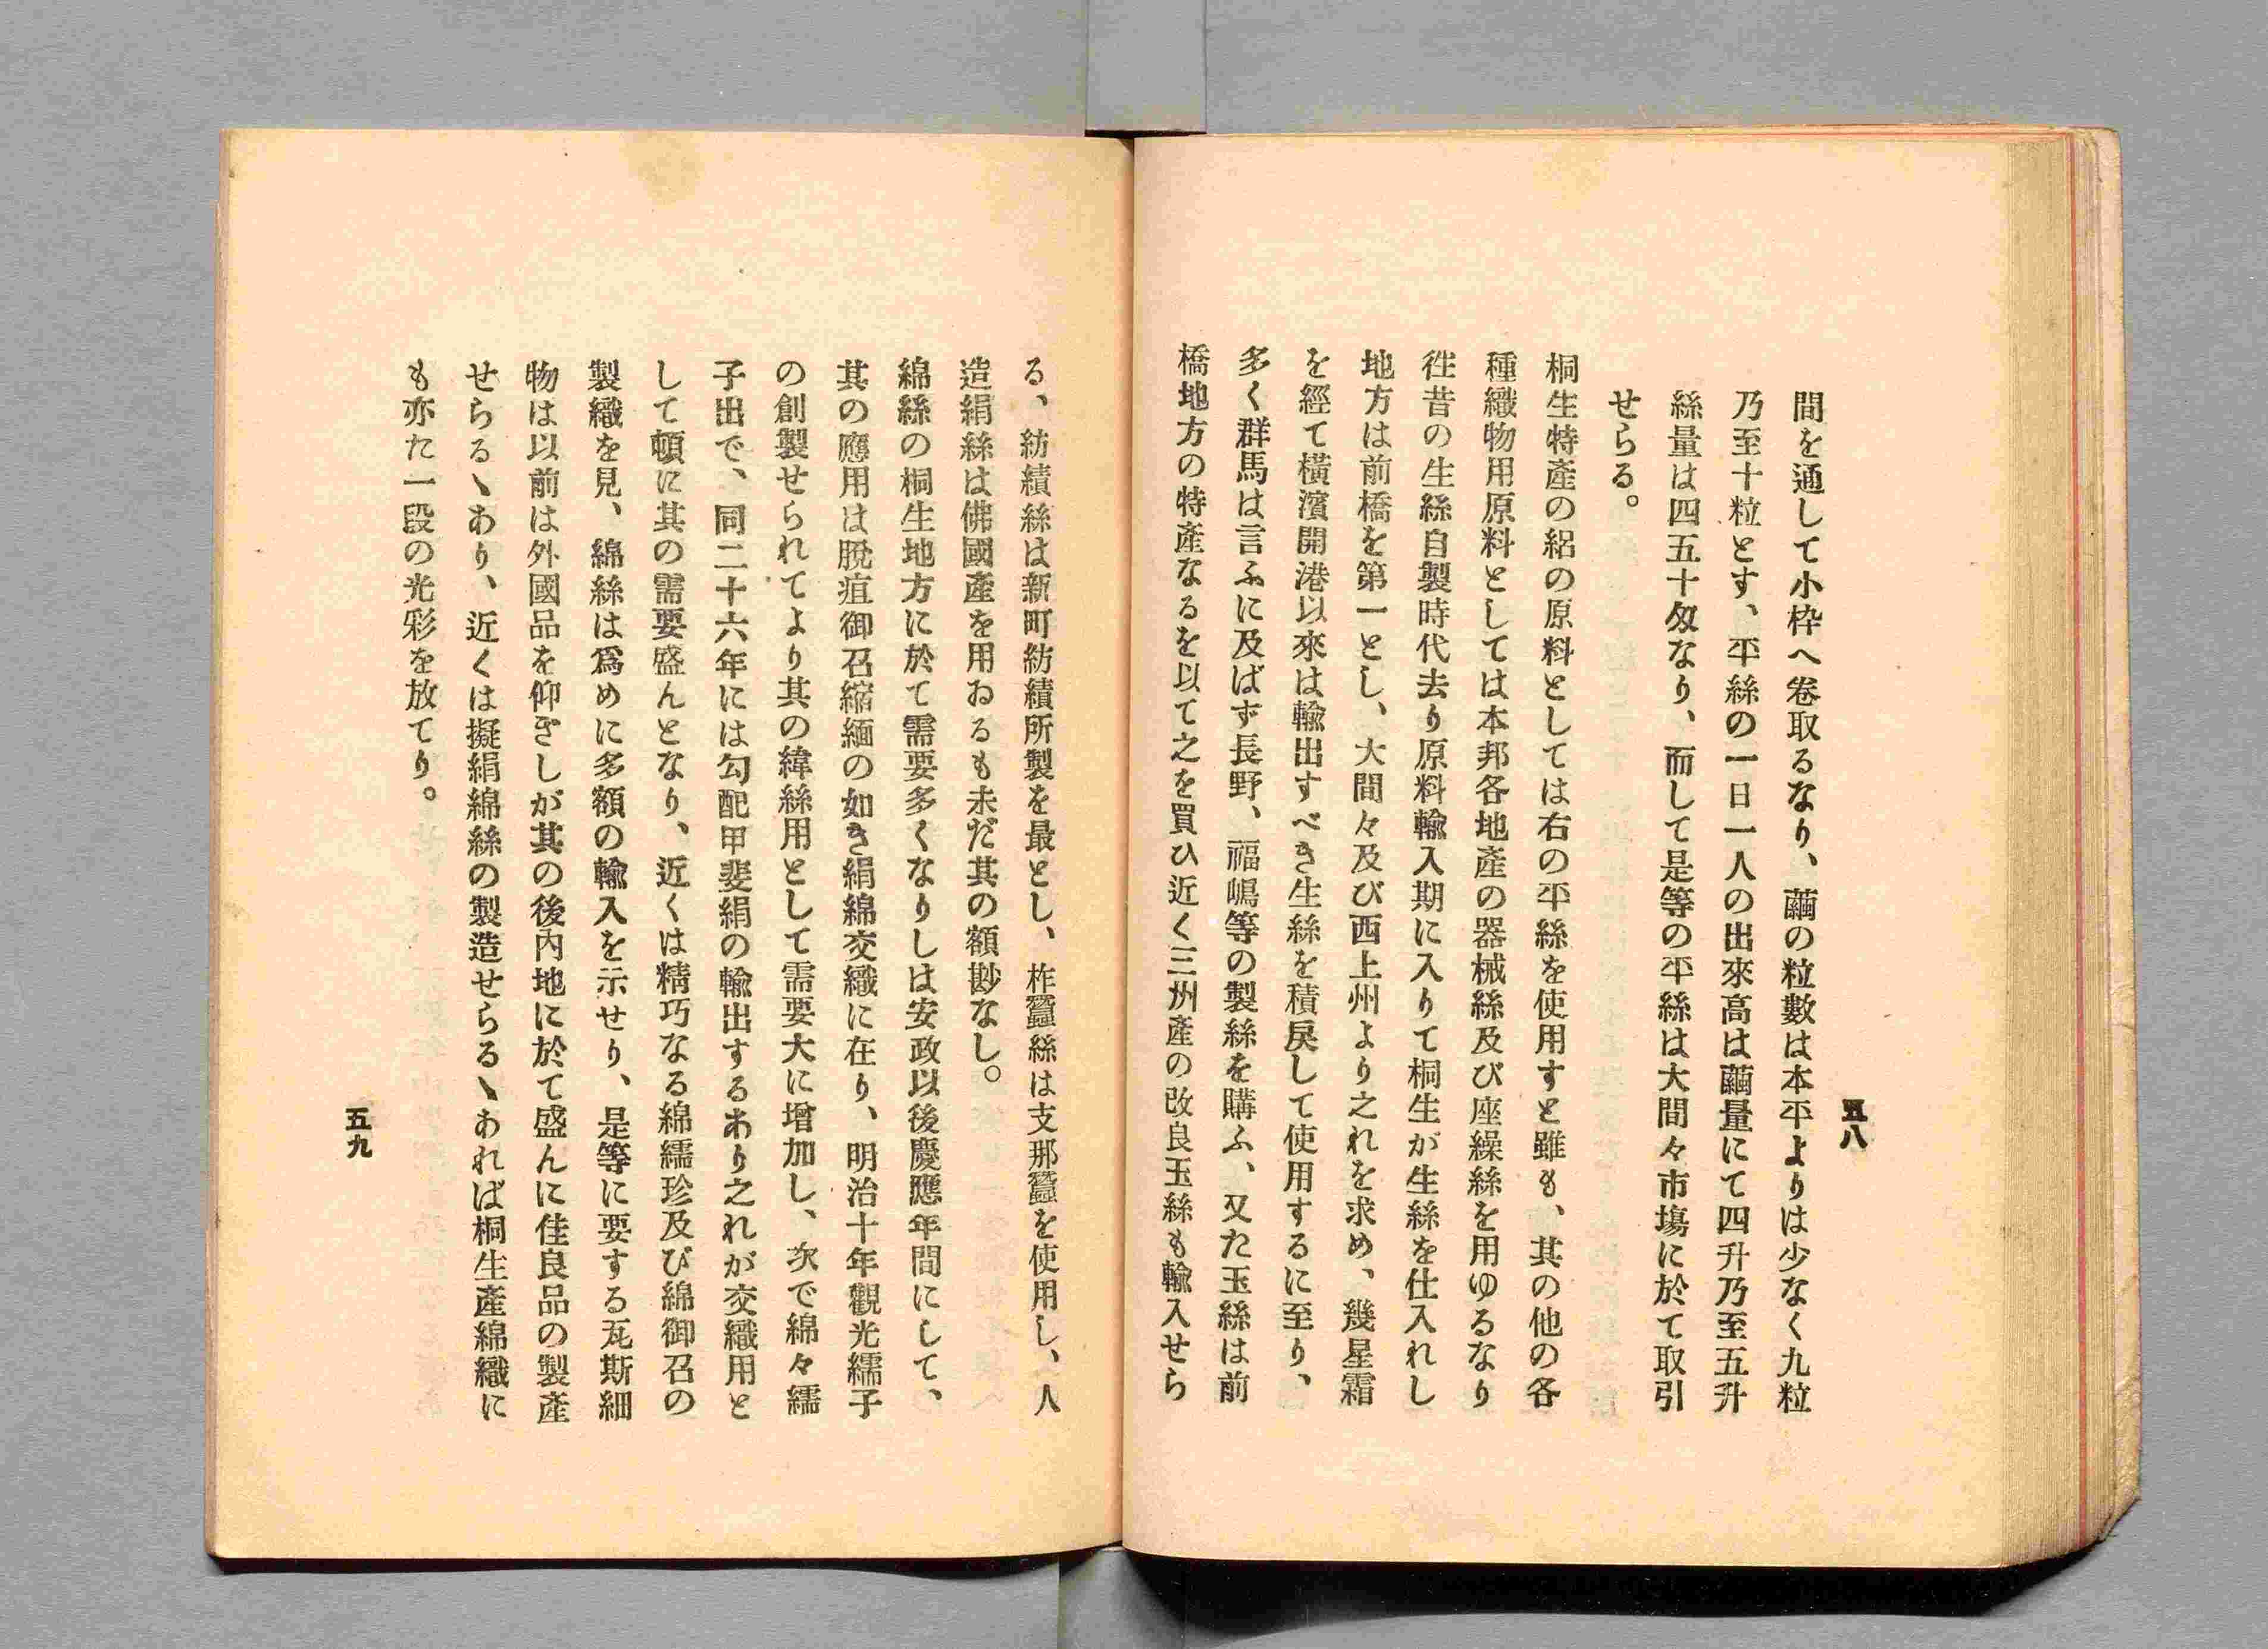 五八
間を通して小枠へ卷取るなり、繭の粒數は本平よりは少なく九粒
乃至十粒とす、平絲の一日一人の出來高は繭量にて四升乃至五升
絲量は四五十匁なり、而して是等の平絲は大間々市塲に於て取引
せらる。
桐生特產の絽の原料としては右の平絲を使用すと雖も、其の他の各
種織物用原料としては本邦各地產の器械絲及び座繰絲を用ゆるなり
徃昔の生絲自製時代去り原料輸入期に入りて桐生が生絲を仕入れし
地方は前橋を第一とし、大間々及び西上州より之れを求め、幾星霜
を經て橫濱開港以來は輸出すべき生絲を積戾して使用するに至り、
多く群馬は言ふに及ばず長野、福嶋等の製絲を購ふ、又た玉絲は前
橋地方の特產なるを以て之を買ひ近く三州產の改良玉絲も輸入せら
る、紡績絲は新町紡績所製を最とし、柞蠶絲は支那蠶を使用し、人
造絹絲は佛國產を用ゐるも未だ其の額尠なし。
綿絲の桐生地方に於て需要多くなりしは安政以後慶應年間にして、
其の應用は脫疽御召縮緬の如き絹綿交織に在り、明治十年觀光繻子
の創製せられてより其の緯絲用として需要大に增加し、次で綿々繻
子出で、同二十六年には勾配甲斐絹の輸出するあり之れが交織用と
して頓に其の需要盛んとなり、近くは精巧なる綿繻珍及び綿御召の
製織を見、綿絲は爲めに多額の輸入を示せり、是等に要する瓦斯細
物は以前は外國品を仰ぎしが其の後內地に於て盛んに佳良品の製產
せらるゝあり、近くは擬絹綿絲の製造せらるゝあれば桐生產綿織に
も亦た一段の光彩を放てり。
五九